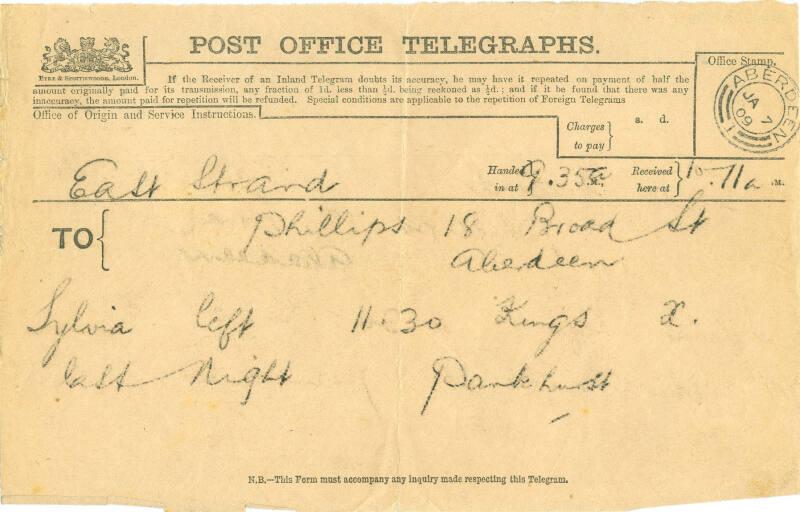 POST OFFICE TELEGRAPHS.
EYRE & SPOTTISWOODE, London.
If the Receiver of an Inland Telegram doubts its accuracy, he may have it repeated on payment of half the
amount originally paid for its transmission, any fraction of 1d. less than ½d. being reckoned as ½d.; and if it be found that there was any
inaccuracy, the amount paid for repetition will be refunded. Special conditions are applicable to the repetition of Foreign Telegrams
Office Stamp.
ABERDEEN
JA 7
09
Office of Origin and Service Instructions.
Charges to pay
s. d.
East Strand
Handed in at 9.35a
Received here at 10.11a M.
TO Phillips 18 Broad St
Aberdeen
Sylvia left 11.30 Kings X.
last night Pankhurst
N.B.—This Form must accompany any inquiry made respecting this Telegram.